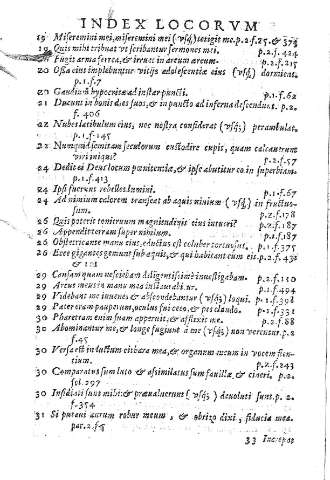 INDEX LOCORVM
19 Miseremini mei, miseremini mei (vsq;) tetigit me. p.2.f.25. & 374
19 Quis mihi tribuat vt scribantur sermones mei. p.2.f.424
20 Fugit arma ferrea, & irruet in arcum æreum. p.2.f.215
20 Ossa eius implebuntur vitijs adolescentiæ eius (vsq;) dormient.
p.1.f.7
20 Gaudium hypocritæ ad instar puncti. p.1.f.62
21 Ducunt in bonis dies suos, & in puncto ad inferna descendunt. p.2.
f. 406
22 Nubes latibulum eius, nec nostra considerat (vsq;) perambulat.
p.1.f.145
22 Nunquid semitam sæculorum custodire cupis, quam calcauerunt
viri iniqui? p.2.f.57
24 Dedit ei Deus locum pœnitentiæ, & ipse abutitur eo in superbiam.
p.1.f.413
24 Ipsi fuerunt rebelles lumini. p.1.f.67
24 Ad nimium calorem transeat ab aquis niuium (vsq;) in fructuo-
sum. p.2.f.178
26 Quis poterit tonitruum magnitudinis eius intueri? p.2.f.187
26 Appendit terram super nihilum. p.1.f.187
26 Obstetricante manu eius, eductus est coluber tortuosus. p.1.f.375
26 Ecce gigantes gemunt sub aquis, & qui habitant cum eis p.2.f.432
& 101
29 Causam quam nesciebam diligentissimè inuestigabam. p.2.f.150
29 Arcus meus in manu mea instaurabitur. p.1.f.494
29 Videbant me iuuenes & abscondebantur (vsq;) loqui. p.1.f.398
29 Pater eram pauperum, oculus fui cæco, & pes claudo. p.1.f.331
30 Pharetram enim suam aperuit, & afflixit me. p.2.f.88
30 Abominantur me, & longe fugiunt à me (vsq;) non verentur. p.2
f.45
30 Versa est in luctum cithara mea, & organum meum in vocem flen-
tium. p.2.f.243
30 Comparatus sum luto & assimilatus sum fauillæ, & cineri. p.2.
fol. 297
30 Insidiati sunt mihi & præualuerunt (vsq;) deuoluti sunt. p.2.
f.354
31 Si putaui aurum robur meum, & obrizo dixi, fiducia mea.
par.2.f.8
33 Increpat